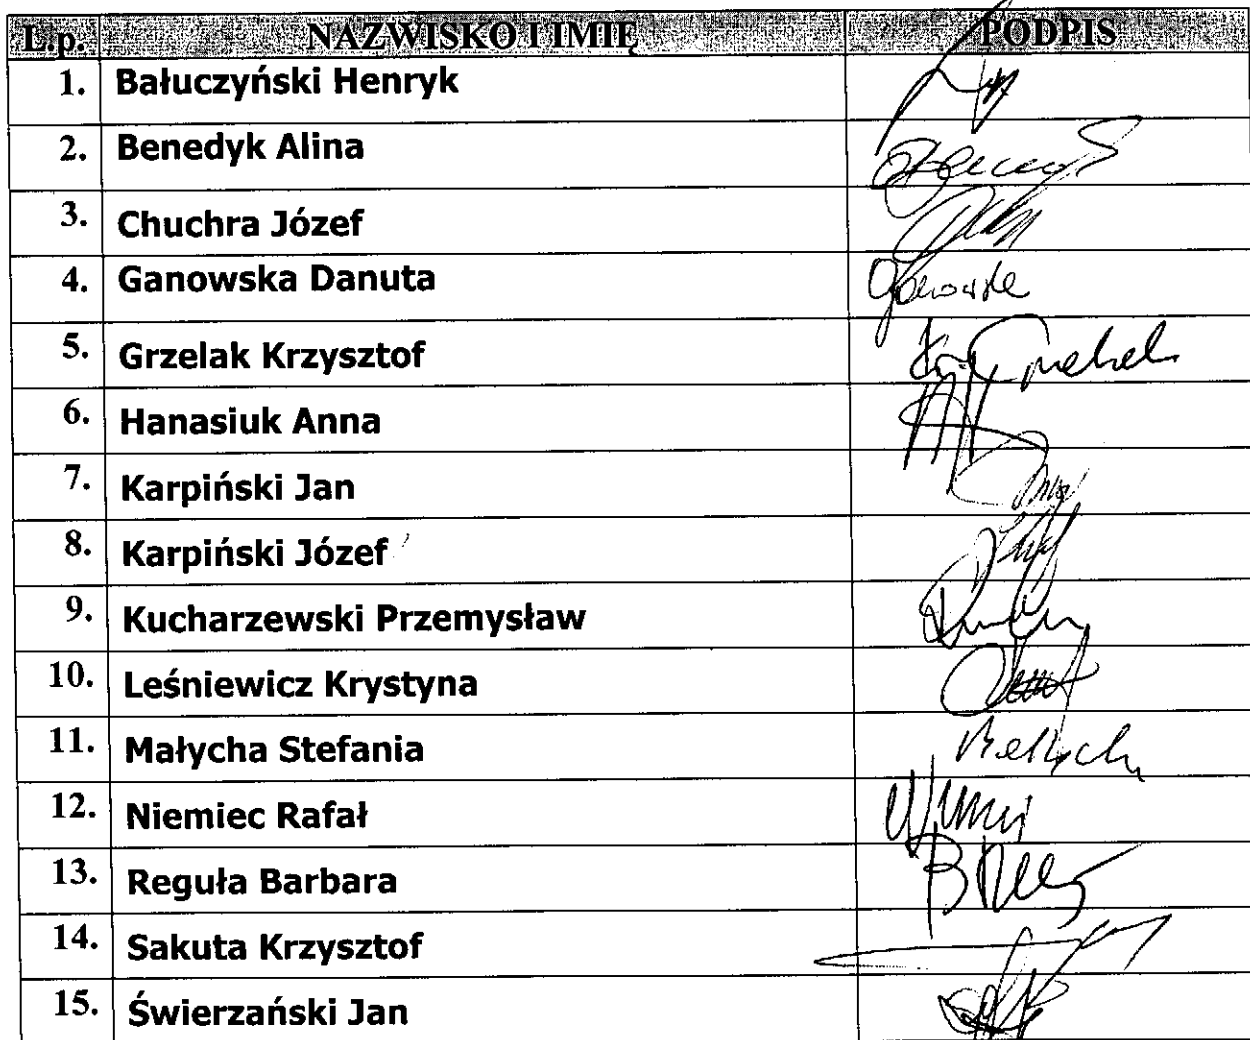 L.p. NAZWISKO I IMIĘ PODPIS
1. Bałuczyński Henryk
2. Benedyk Alina
3. Chuchra Józef
4. Ganowska Danuta
5. Grzelak Krzysztof
6. Hanasiuk Anna
7. Karpiński Jan
8. Karpiński Józef
9. Kucharzewski Przemysław
10. Leśniewicz Krystyna
11. Małycha Stefania
12. Niemiec Rafał
13. Reguła Barbara
14. Sakuta Krzysztof
15. Świerzański Jan